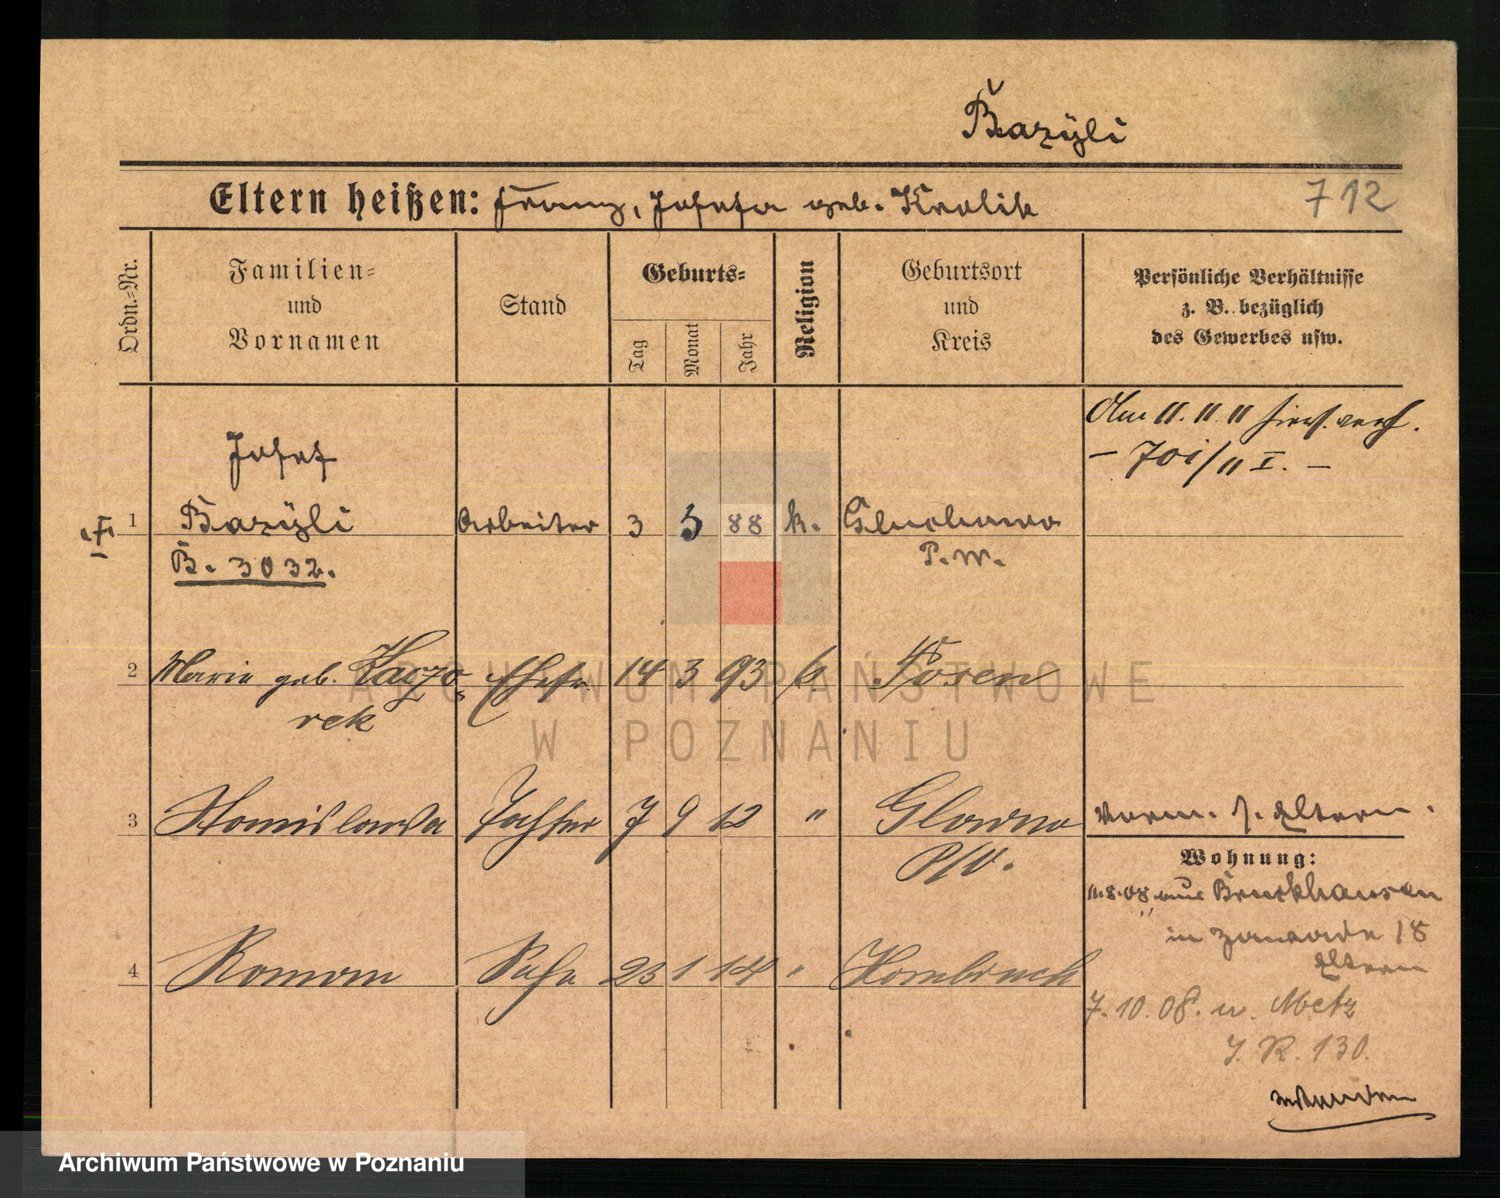 Bazÿli
Eltern heißen: Franz, Josefa geb. Krolik
712
Ordn.-Nr.
Familien-
und
Vornamen
Stand
Geburts-
Tag
Monat
Jahr
Religion
Geburtsort
und
Kreis
Persönliche Verhältnisse
z. B. bezüglich
des Gewerbes usw.
Am 11. 11. 11 hies. verh.
– 701/11 I. –
Josef
1 Bazÿli Arbeiter 3 3 88 k. Gluchowo
B. 3032. P. W.
2 Marie geb. Kaczo Ehefr 14 3 93 k Posen
rek
3 Stanislawa Tochter 7 9 12 " Glowno
P/O.
Vorm. s. Eltern.
Wohnung:
11.8.08 aus Bruckhausen
in Zawade 18
Eltern
4 Roman Sohn 23 1 14 " Hombruch
7.10.08. n. Metz
J. R. 130.
wenden
ARCHIWUM PAŃSTWOWE
W POZNANIU
Archiwum Państwowe w Poznaniu